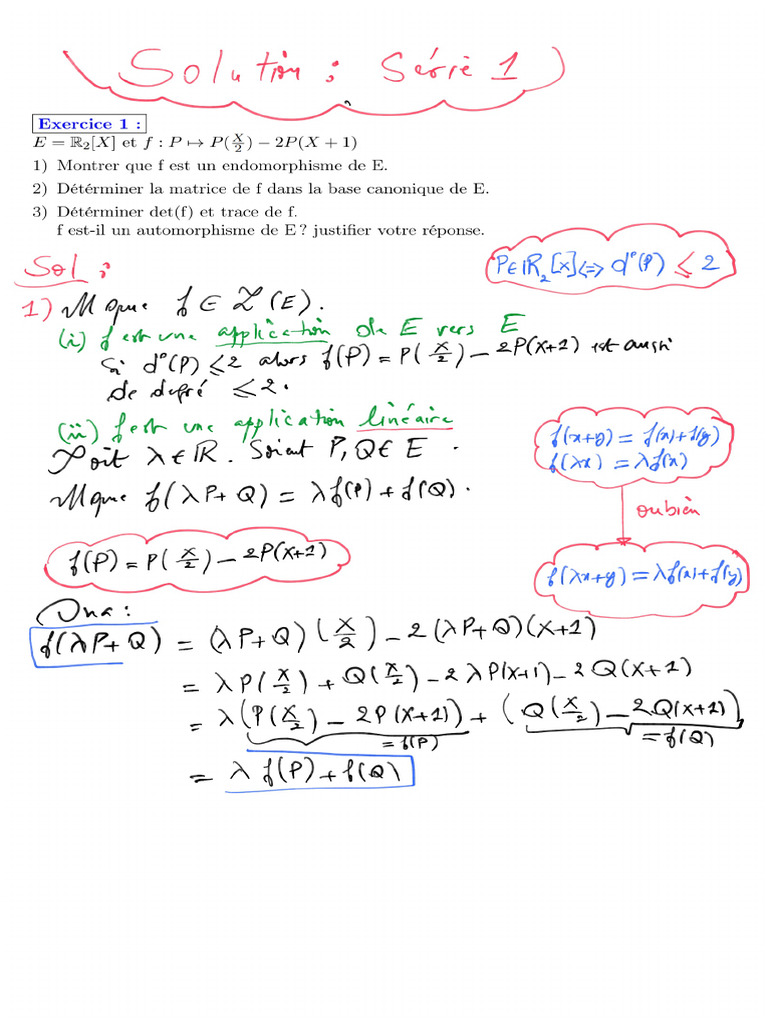 Solution : Série 1
Exercice 1 :
E = ℝ₂[X] et f : P ↦ P(X/2) − 2P(X + 1)
1) Montrer que f est un endomorphisme de E.
2) Détérminer la matrice de f dans la base canonique de E.
3) Détérminer det(f) et trace de f.
f est-il un automorphisme de E ? justifier votre réponse.
Sol :
P∈ℝ₂[X] <=> d°(P) ⩽ 2
1) Mque f ∈ ℒ(E).
(i) f est une application de E vers E
Si d°(P) ⩽ 2 alors f(P) = P(X/2) − 2P(X+1) est aussi
de degré ⩽ 2.
(ii) f est une application linéaire
Soit λ∈ℝ. Soient P, Q ∈ E.
Mque f(λP+Q) = λf(P) + f(Q).
f(x+y) = f(x)+f(y)
f(λx) = λf(x)
oubien
f(λx+y) = λf(x)+f(y)
f(P) = P(X/2) − 2P(X+1)
Ona :
f(λP+Q) = (λP+Q)(X/2) − 2(λP+Q)(X+1)
= λP(X/2) + Q(X/2) − 2λP(X+1) − 2Q(X+1)
= λ(P(X/2) − 2P(X+1)) + (Q(X/2) − 2Q(X+1))
= f(P) = f(Q)
= λf(P) + f(Q)